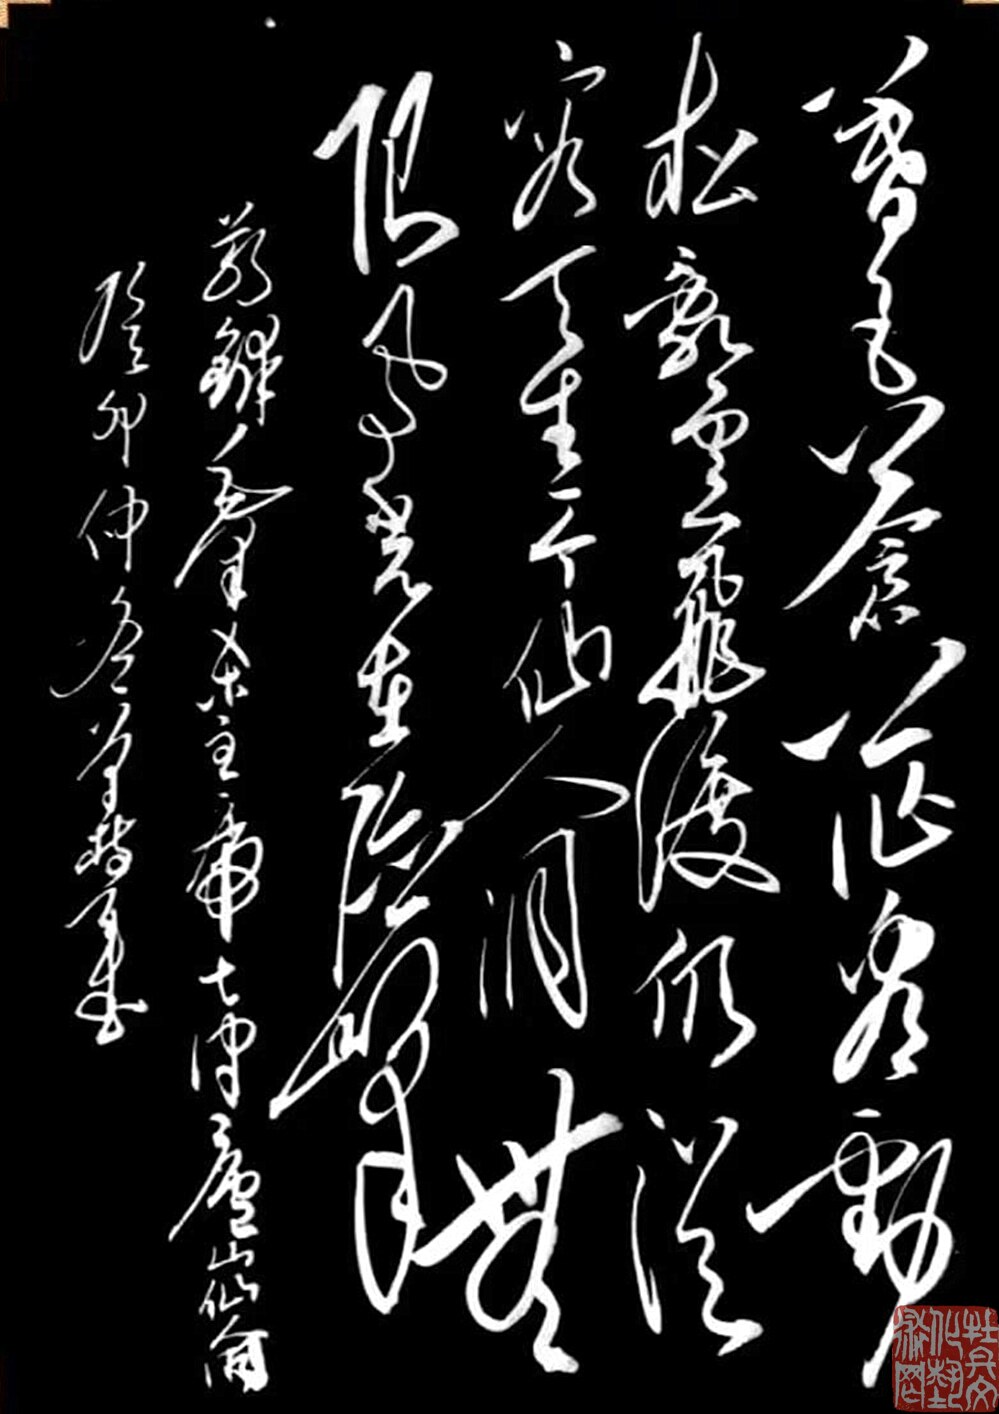 暮色蒼茫看勁
松亂雲飛渡仍從
容天生一个仙人洞無
限風光在險峰
錄毛澤東主席七廬山仙洞
癸卯仲冬書